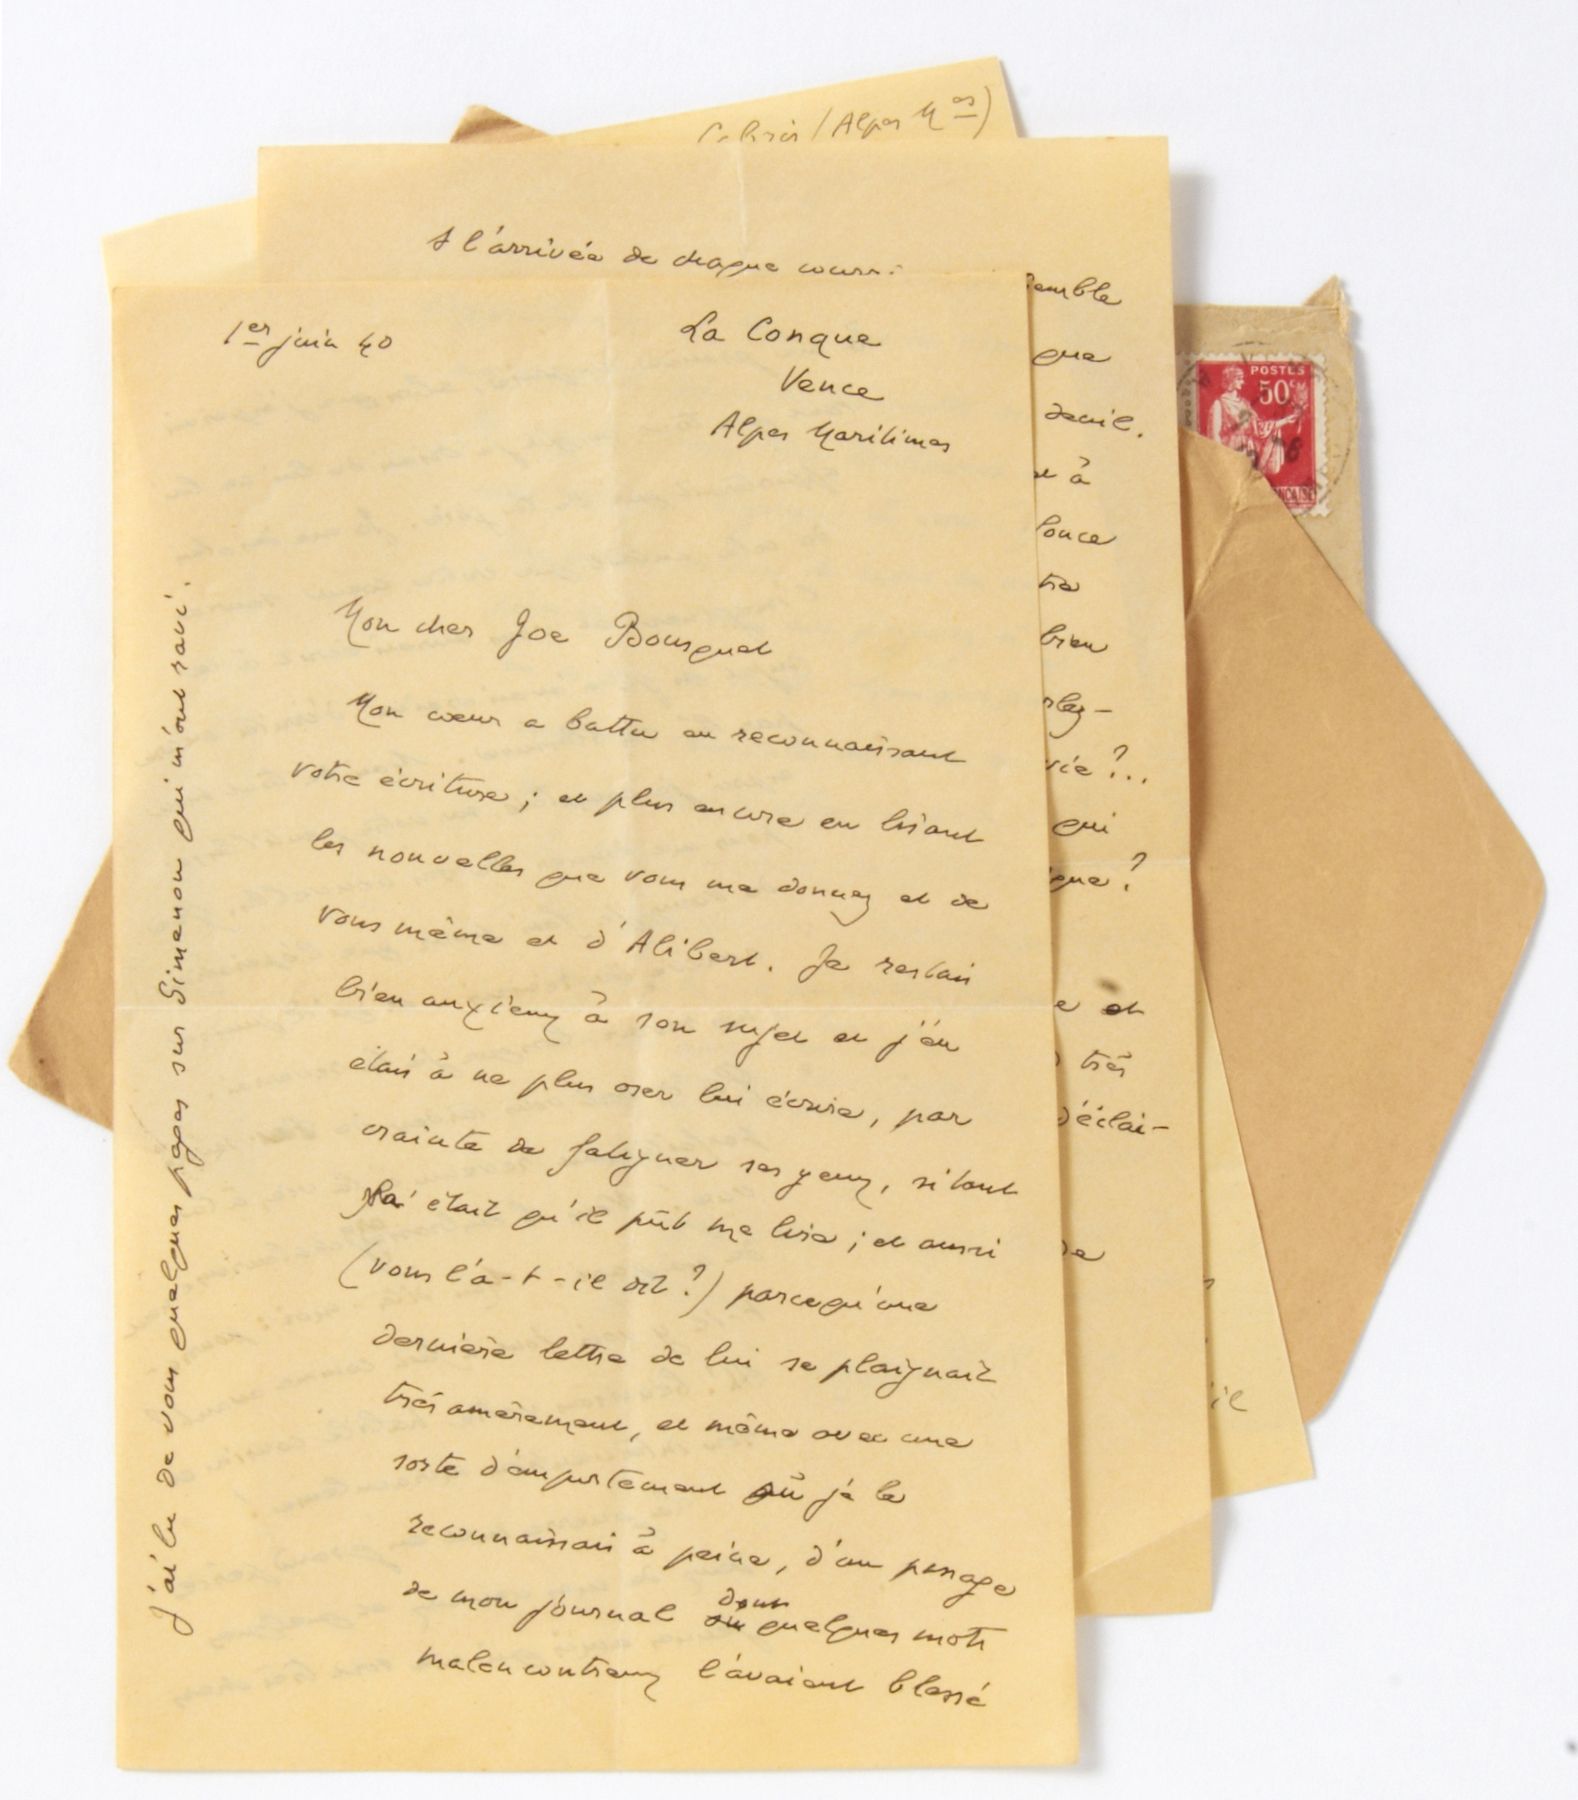 (Alpes Mes)
A l'arrivée de chaque
semble
que
deuil.
et à
bien
vie ?..
qui
e et
très
d'éclai-
de
il
POSTES
50c
1er juin 40
La Conque
Vence
Alpes Maritimes
Mon cher Joe Bousquet
Mon cœur a battu en reconnaissant
votre écriture ; et plus encore en lisant
les nouvelles que vous me donnez et de
vous même et d'Alibert. Je restais
bien anxieux à son sujet et j'en
étais à ne plus oser lui écrire, par
crainte de fatiguer ses yeux, si tant
était qu'il pût me lire ; et aussi
(vous l'a-t-il dit ?) parcequ'une
dernière lettre de lui se plaignait
très amèrement, et même avec une
sorte d'emportement où je le
reconnaissais à peine, d'un passage
de mon journal dont quelques mots
malencontreux l'avaient blessé
J'ai lu de vous quelques pages sur Simenon qui m'ont ravi.